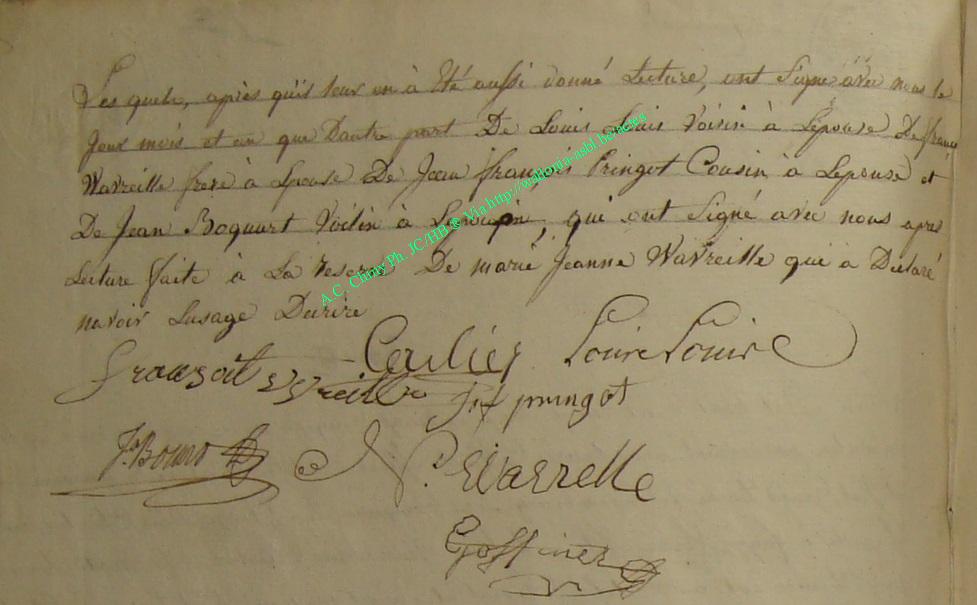 Les quels, après qu'il leur en à Eté aussi donné Lecture, ont Signe avec nous le
Jour mois et an que Dautre part De Louis Louis Voisin à Lepouse De franc
Wavreille frere à Lpouse De Jean françois Pringot Cousin à Lepouse et
De Jean Boquart Voisin à, qui ont Signé avec nous apres
Lecture faite à La reserve De marie Jeanne Wavreille qui a Declaré
navoir Lusage Decrire
Cerlier Louis Louis
françois
jf pringot
N.
Goffinet
A.C. Chiny Ph. JC/HB © Ma http://wallonia-asbl.be/actes